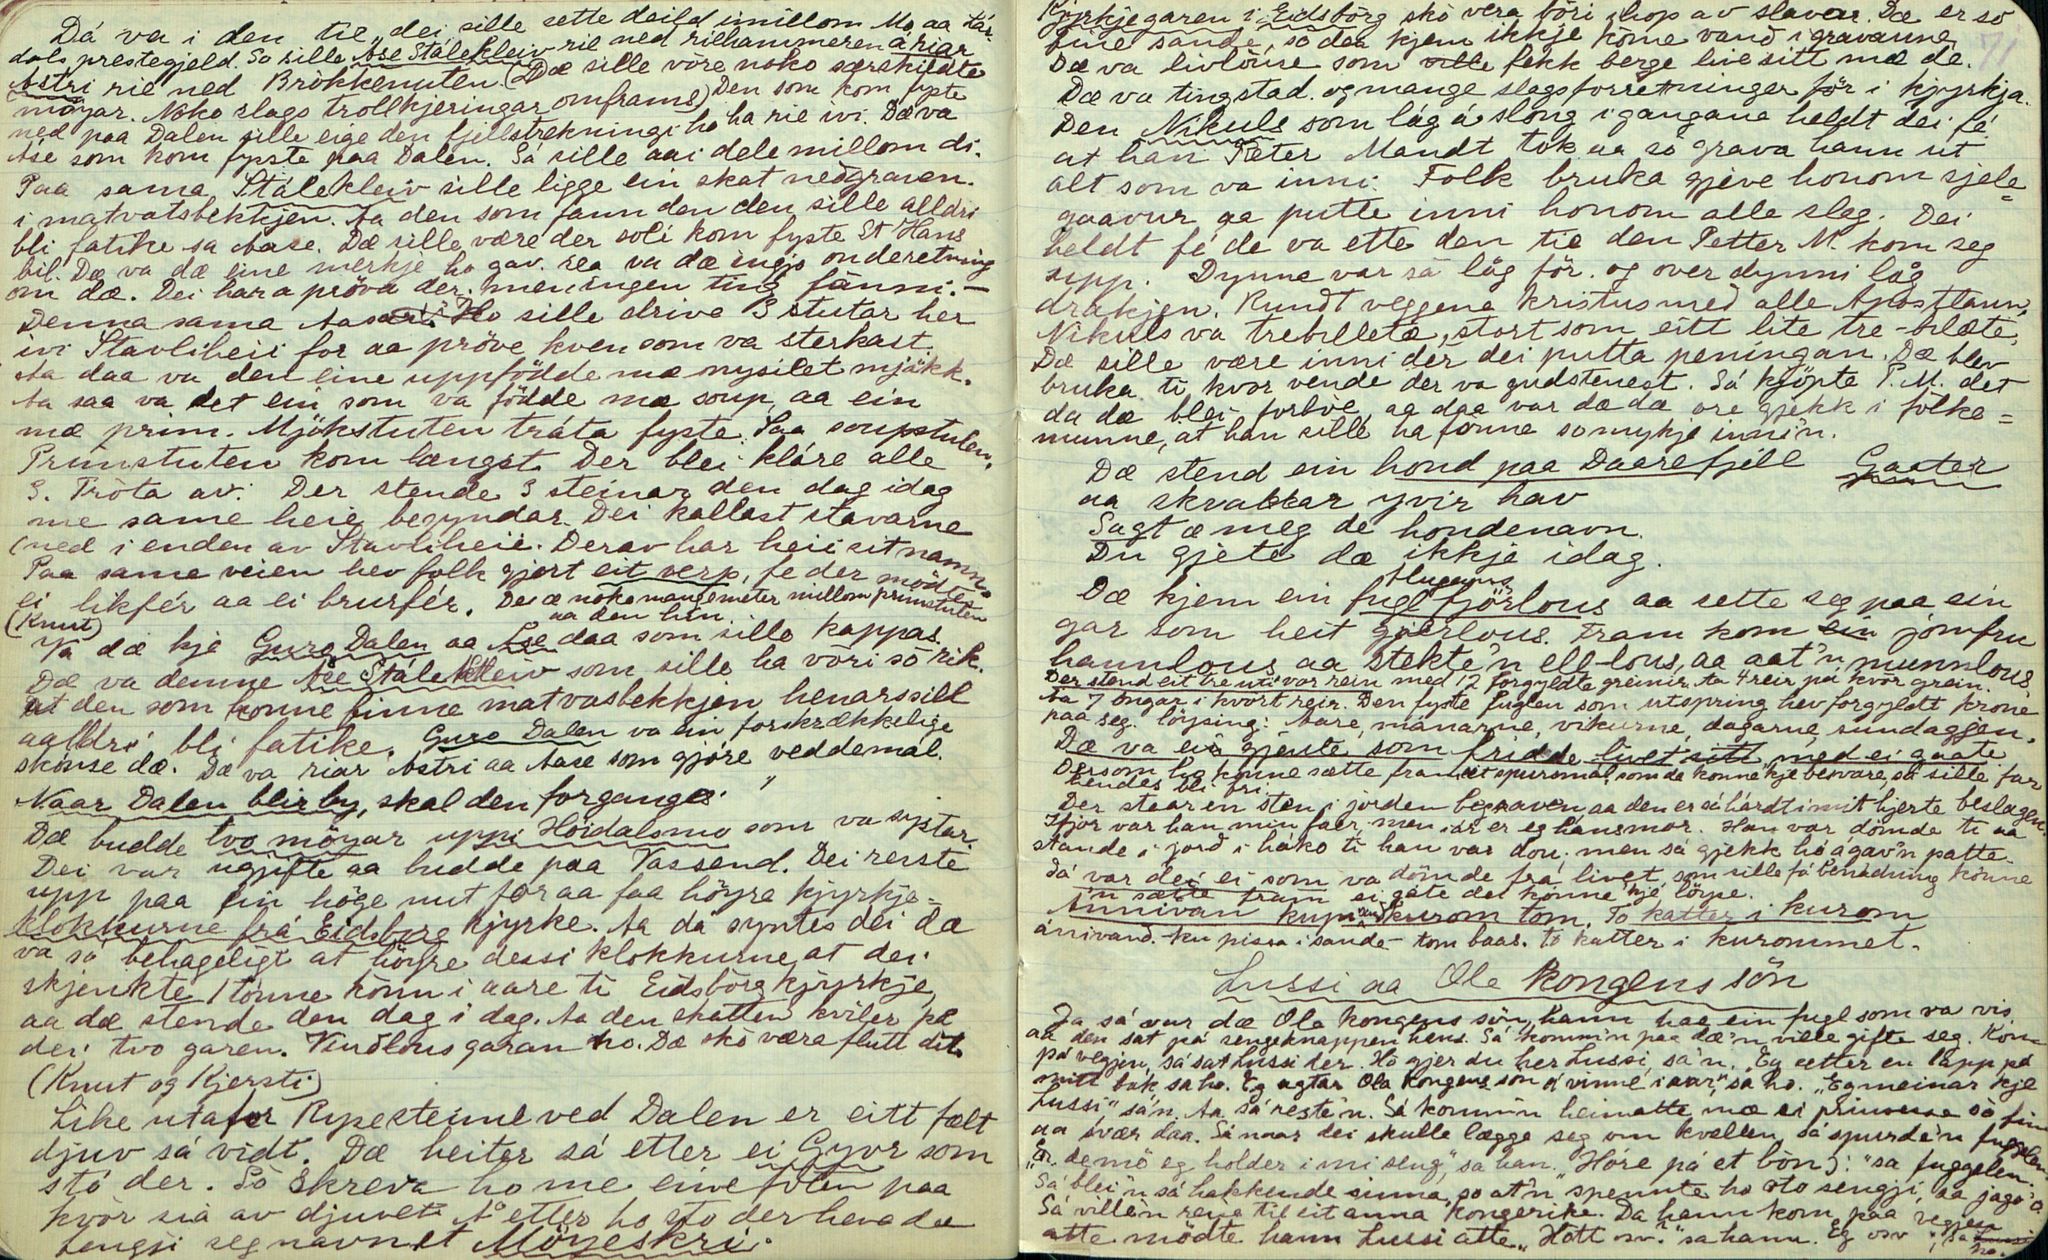 Dá va i den tie, dei sille sette deild imillom Mo aa Lár-
dals prestegjeld. So sille Åse Stålekleiv rie ned rilhammeren å riar
Astri rie ned Brökkenuten. (Dæ sille vöre noko særskildte
möyar. Noko slags trollkjeringar omframs) Den som kom fyste
ned paa Dalen sille eige den fjellstrekningi ho ha rie ivi. Dæ va
Åse som kom fyste paa Dalen. Så sille aai dele millom di.
Paa sama Stålekleiv sille ligge ein skat nedgraven
i matvatsbekkjen. Aa den som fann den den sille alldri
bli fatike sa Aase. Dæ sille være der soli kom fyste St Hans
bil. Dæ va dæ eine merkje ho gav. rea va dæ ingjo onderetning
om dæ. Dei hara pröva der. men ingen ting fånni. —
Denna sama Aase. Ho sille drive 3 stutar her
ivi Stavliheii for aa pröve kven som va sterkast.
Aa daa va den eine uppfödde mæ nysilet mjåkk.
Aa saa va det ein som va födde mæ soup aa ein
mæ prim. Mjökstuten tråta fyste. Saa soupstuten.
Primstuten kom længst. Der blei kláre alle
3. Tròta av. Der stende 3 steinar den dag idag
me same heie begyndar. Dei kallast stavarne
(ned i enden av Stavliheii. Derav har heii sit namn.
Paa same veien hev folk gjort eit verp, fe der mödtes
ei likfér aa ei brurfér. Dei æ noko mange meter millom primstuten
(Knut) aa den hin.
Va dæ kje Guro Dalen aa Åse daa som sille kappas.
Dæ va denne Åse Stålekleiv som sille ha vöri sò rik.
at den som konne finne matvasbekkjen henars sill
aalldri bli fatike. Guro Dalen va ein forskrækkelige
skouse dæ. Dæ va riar Astri aa Aase som gjöre veddemål.
Naar Dalen blir by, skal den forganges.
Dæ budde two möyar uppi Höidalsmo som va systar.
Dei var ugjifte aa budde paa Vassend. Dei reiste
upp paa ein höge nut for aa faa höyre kjyrkje=
klokkurne frå Eidsborg kjyrke. Aa då syntes dei dæ
va så behageligt at höyre dessi klokkurne, at dei
skjenkte 1 tönne könn i aare ti Eidsborg kjyrkje
aa dæ stende den dag i dag. Aa den skatten kviler på
dei two garen. Vindlousgaran ho. Dæ skò være flutt dit.
(Knut og Kjersti)
Like utafor Rypesteinne ved Dalen er eitt fælt
djuv så vidt. Dæ heiter så etter ei Gyvr som
stó der. Sò skreva ho me eine foten paa
kvòr sia av djuvet. Å etter ho sto der heva dæ
tengji seg navnet Möyeskri.

Kjyrkjegaren i Eidsbòrg skò vera böri ihop av slavar. Dæ er sò
fine sande, so dæ kjem ikkje kòme vand i gravanne.
Dæ va livlouse som fekk berge live sitt mæ de.
Dæ va tingstad. og mange slags forretninger för i kjyrkja.
Den Nikuls som låg å slong i gangane heldt dei fé
at han Peter Mandt tok aa sò grava hann ut
alt som va inni. Folk bruka gjeve honom sjele=
gaavur aa putte inni honom alle slag. Dei
heldt fé de va ette den tie den Petter M. kom seg
upp. Dynne var så låg för. og over dynni låg
drakjen. Rundt veggene kristus med alle Apostlann,
Nikuls va trebilletæ, stort som eitt lite tre-bilæte,
Dæ sille være inni der dei putta peningan. Dæ blev
bruka ti kvor vende der va gudstenest. Så kjöpte P. M. det
da dæ blei forbòe, aa daa var dæ dæ ore gjekk i fölke=
munne, at han sille ha fonne so mykje inni'n.
Dæ stend ein hond paa Daarefjell Gaater
aa skvakkar yvir hav
Sagt æ meg de hondenavn.
Du gjete dæ ikkje idag.
Dæ kjem ein fugl fjörlous aa sette seg paa ein
gar som heit gjerlous. Fram kom jomfru
hannlous aa stekte'n ell-lous, aa aat'n munnlous.
Der stend eit tre uti vor rein med 12 forgyldte greinir. Aa 4 reir på kvor grein.
Aa 7 ongar i kvort reir. Den fyste fuglen som utspring hev forgyldt krone
paa seg. löysing: Aare, månarne, vikurne, dagarne, sundaggjen.
Dæ va ei gjente som fridde livet sitt med ei gaate
Dersom ho konne sætte fram eit spursmål, som de konne kje besvare, så sille far
hendes bli fri.
Der staar en sten i jorden begraven, aa den er så hårdt i mit hjerte beslagen.
Ifjor var han min faer, men i år er eg hans mor. Han var dömde ti aa
stande i jord i hako ti han var dou. men så gjekk ho å gav'n patte.
Då var dei ei som va dömde frå livet, som sille få benådning konne
'n sætte fram ei gåte dei könne kje löyse.
Annivan kupi sand kurom tom. To katter i kurom
ånivand. ku pissa i sande – tom baas. to katter i kurommet.
Lussi aa Ole kongens sön
Ja så var dæ Ola kongens sön, hann hae ein fugl som va vis
aa den sat på sengeknappen hens. Så komm'n paa dæ'n ville gifte seg. Kom
på vegjen, så sat Lussi der. Ho gjer du her Lussi, sa'n. „Eg setter en lapp på
mitt bak, sa ho. Eg agtar Ola kongens sön å vinne i aar," sa ho. „Eg meinar kje
Lussi" sa'n. Aa så reste'n. Så komm'n heimatte mæ ei prinsesse så fin
aa svær daa. Så naar dei skulle lægge seg om kvellen så spurde'n fuggelen.
„Er de mö eg holder i mi seng", sa han. „Höre på et bòn): "sa fuggelen.
Så blei'n så hakkende sinna, so at'n spennte ho oto sengji, aa jaga å.
Så ville'n reise til eit anna kongerike. Da hann kom paa vegjen
atte mödte hann Lussi atte „Hott osv." sa hann. Eg osv", sa ho.